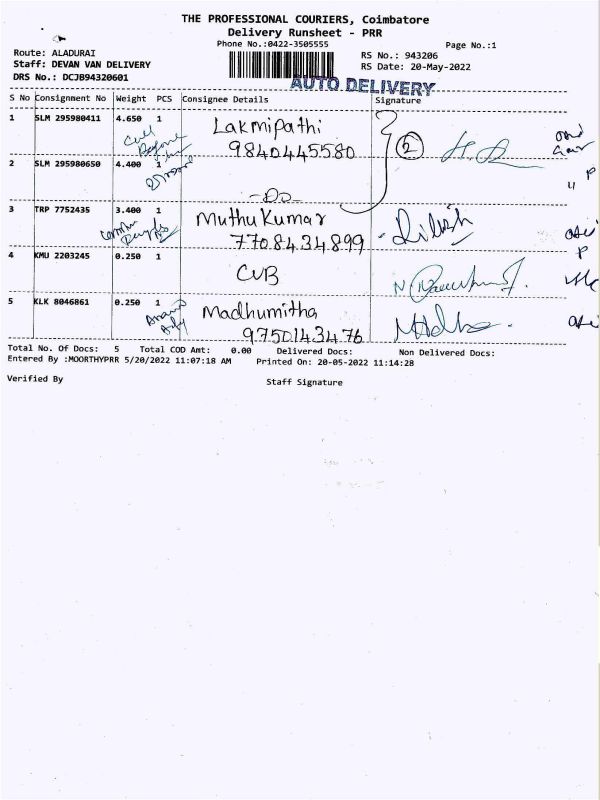 THE PROFESSIONAL COURIERS, Coimbatore
Delivery Runsheet - PRR
Phone No.:0422-3505555
Page No.:1
Route: ALADURAI
Staff: DEVAN VAN DELIVERY
DRS No.: DCJB94320601
RS No.: 943206
RS Date: 20-May-2022
AUTO DELIVERY
S No Consignment No Weight PCS Consignee Details Signature
1 SLM 295980411 4.650 1 Lakmipathi
9840445580
2
2 SLM 295980650 4.400 1
-Do-
3 TRP 7752435 3.400 1 Muthu Kumar
7708434899
4 KMU 2203245 0.250 1
CVB
5 KLK 8046861 0.250 1 Madhumitha
9750143476
Total No. Of Docs: 5 Total COD Amt: 0.00 Delivered Docs: Non Delivered Docs:
Entered By :MOORTHYPRR 5/20/2022 11:07:18 AM Printed On: 20-05-2022 11:14:28
Verified By Staff Signature